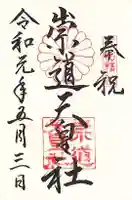 奉祝
崇道天皇社
令和元年五月三日